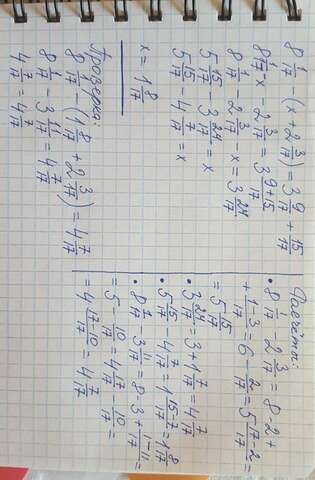 8 1/17 - (x + 2 3/17) = 3 9/17 + 15/17
8 1/17 - x - 2 3/17 = 3 9+15/17
8 1/17 - 2 3/17 - x = 3 24/17
5 15/17 - 3 24/17 = x
5 15/17 - 4 7/17 = x
x = 1 8/17
Проверка:
8 1/17 - (1 8/17 + 2 3/17) = 4 7/17
8 1/17 - 3 11/17 = 4 7/17
4 7/17 = 4 7/17
Расчёты:
• 8 1/17 - 2 3/17 = 8-2+
+ 1-3/17 = 6 - 2/17 = 5 17-2/17 =
= 5 15/17
• 3 24/17 = 3+1 7/17 = 4 7/17
• 5 15/17 - 4 7/17 = 1 15-7/17 = 1 8/17
• 8 1/17 - 3 11/17 = 8-3+ 1-11/17 =
= 5 - 10/17 = 4 17/17 - 10/17 =
= 4 17-10/17 = 4 7/17